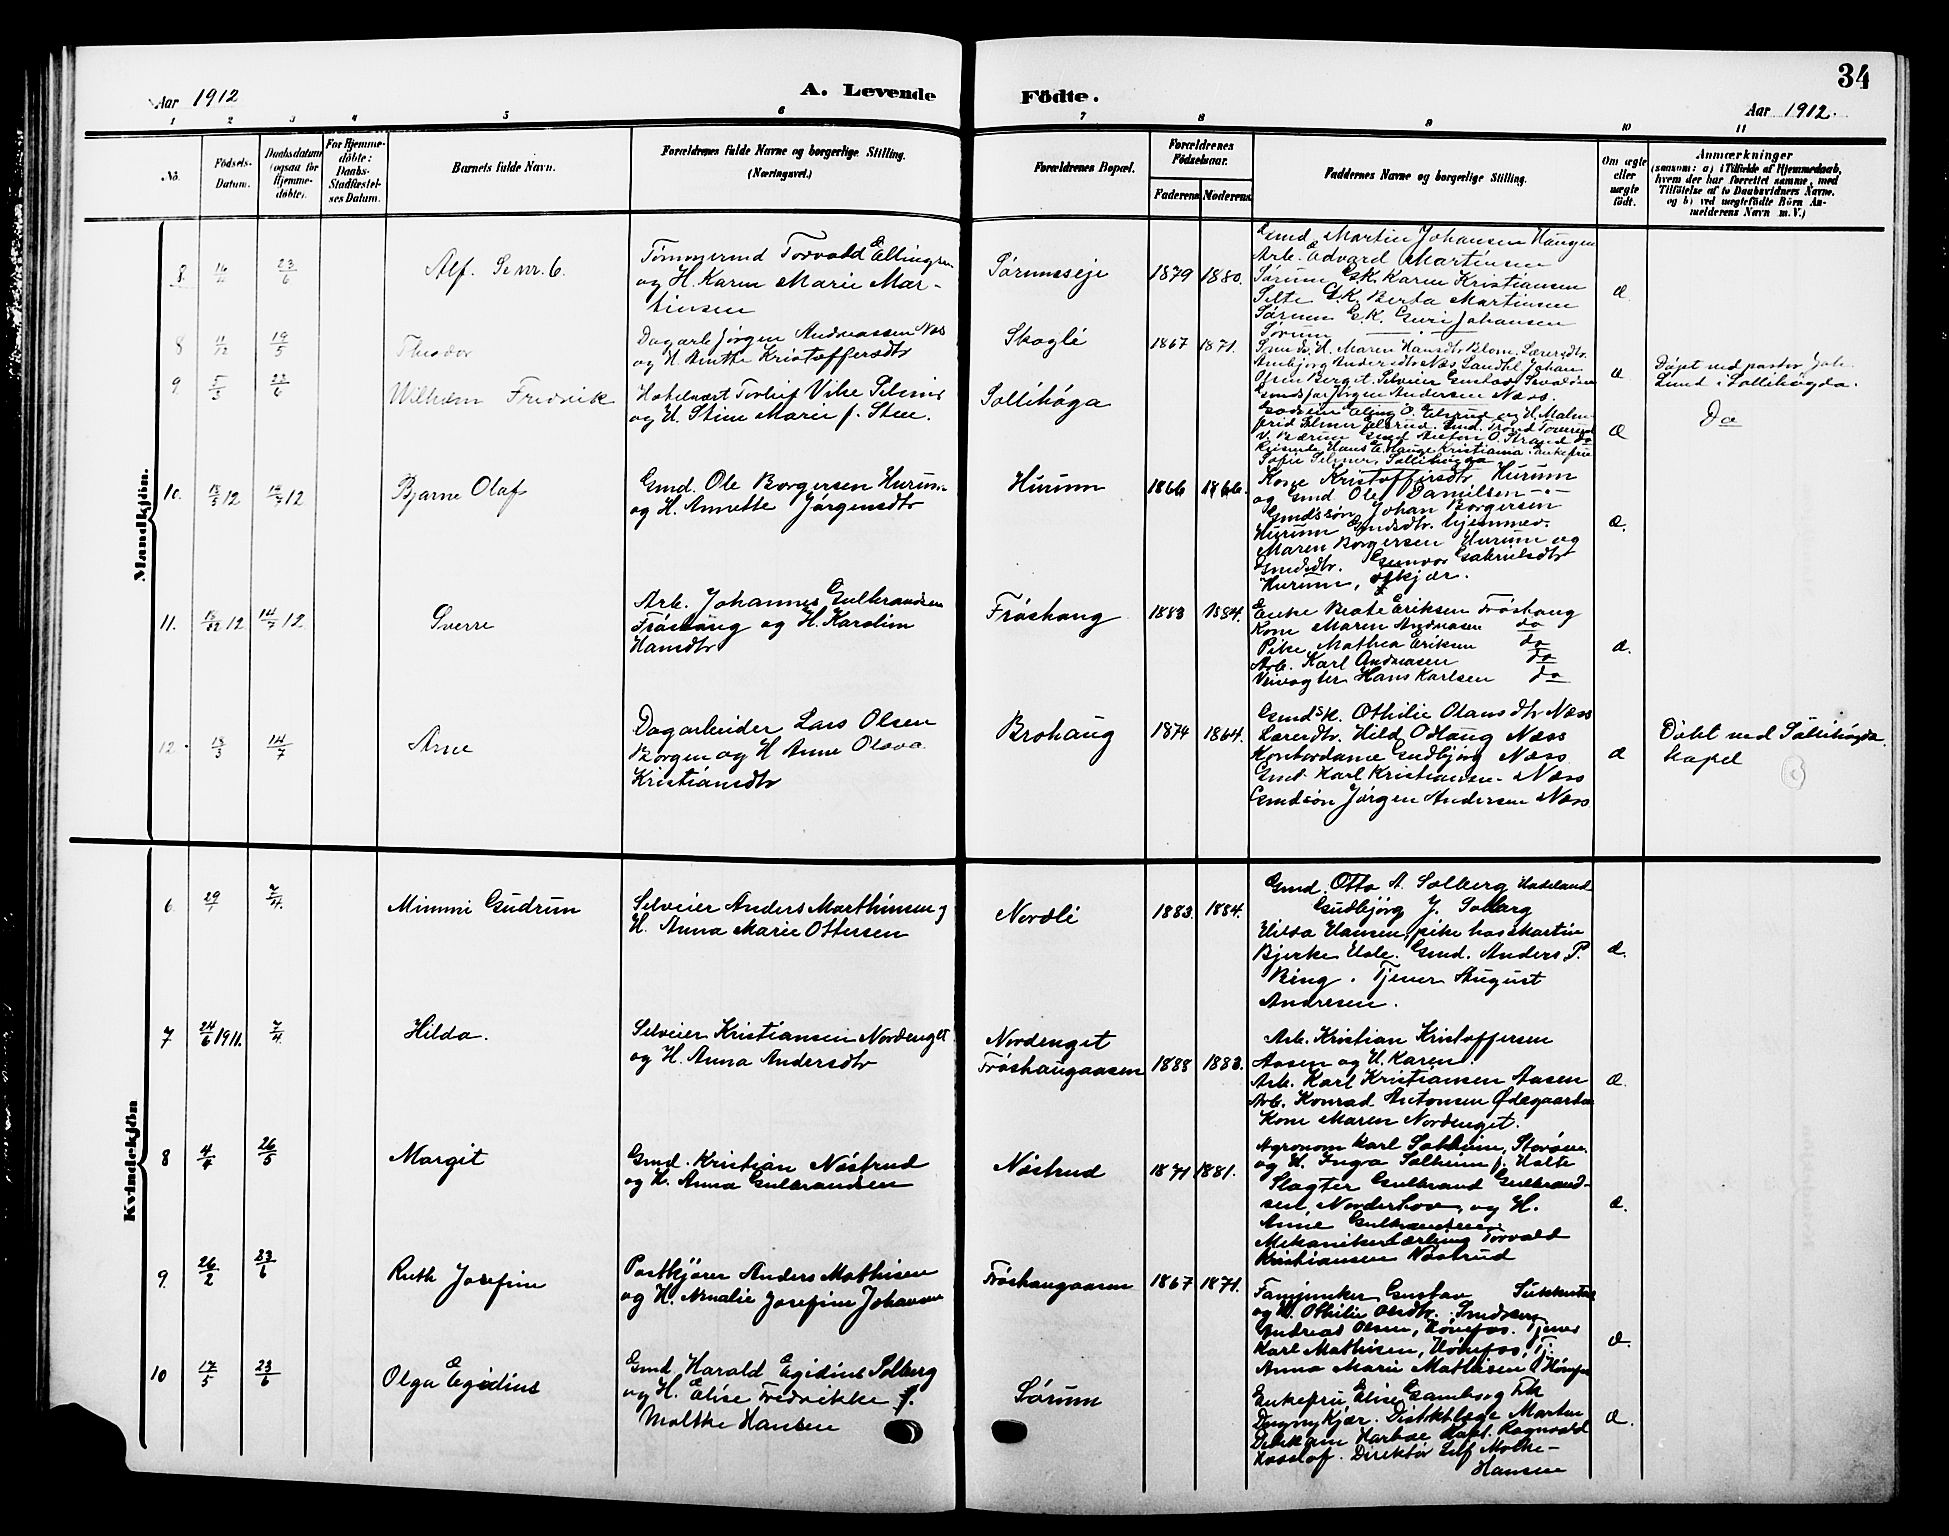 34
Aar 1912
A. Levende Födte.
Aar 1912.
1 2 3 4 5 6 7 8 9 10 11
No.
Födsels-
Datum.
Daabsdatum
(ogsaa for
Hjemme-
döbte).
For Hjemme-
döbte:
Daabs-
Stadfæstel-
ses Datum.
Barnets fulde Navn.
Forældrenes fulde Navne og borgerlige Stilling.
(Næringsvei.)
Forældrenes Bopæl.
Forældrenes
Födselsaar.
Faderens
Moderens
Faddernes Navne og borgerlige Stilling.
Om ægte
eller
uægte
födt.
Anmærkninger
(saasom: a) i Tilfælde af Hjemmedaab,
hvem der har forrettet samme, med
Tilföielse af to Daabsvidners Navne,
og b) ved uægtefödte Börn An-
melderens Navn m. V.)
Mandkjön.
8. 23/6
Alf. Se nr. 6.
Tømmermd Torvald Ellingsen
og H. Karen Marie Mar-
tinsen
Sørumseje
1879 1880.
Gmd Martin Johansen Haugen
Arb. Edvard Martinsen
Sørum G.K. Karen Kristiansen
Selte G.K. Berta Martinsen
Sørum G.K. Guri Johansen
Sørum
Æ
8 11/12 19/5
Theodor
Dagarb Jørgen Andreassen Næs
og H. Anette Kristoffersdtr
Skogli
1867 1871.
H. Maren Hansdtr Blom, Lærersdtr.
Johan
Gustav
Jørgen Andersen Næs.
Æ
Døpt ved pastor Joh.
Lund i Sollihøgda.
9 5/3 23/6
Wilhelm Fredrik
Hotelvært Torleif Vike Selmer
og H. Stine Marie f. Steen.
Sollihøga
Elling O. Elsrud og H. Malm-
frid Selmer Elsrud. Gmd. Trond
V. Bærum Gmd Anton O. Strand do
Hans E. Hauge Kristiania. Enkefru
Sofie Selmer, Sollihøgda
Æ
Do
10. 12 12
Bjarne Olaf
Gmd. Ole Borgersen Hurum
og H. Annette Jørgensdtr
Hurum
1866 1866.
Kone Kristoffersdtr Hurum
og Gmd Ole Danielsen -"-
Gmdssøn Johan Borgersen
Hurum Gmdsdtr. hjemmev.
Maren Borgersen Hurum og
Gmdsdtr. Gunvor Gabrielsdtr
Hurum,
Æ.
11. 12 14/7 12
Sverre
Arb. Johannes Gulbrandsen
Frøshaug og H. Karoline
Hansdtr
Frøshaug
1883 1884.
Enke Beate Eriksen Frøshaug
Kone Maren Andreasen do
Pike Mathea Eriksen do
Arb. Karl Andreasen do
Veivogter Hans Karlsen do
Æ.
12. 13/3 14/7
Arne
Dagarbeider Lars Olsen
Borgen og H Anne Olava
Kristiansdtr
Brohaug
1874 1864.
Gmdsk. Othilie Olansdtr Næss
Lærersdtr. Hild Odlaug Næss
Kontordame Gudbjørg Næss
Gmd Karl Kristiansen Næss
Gmdsøn Jørgen Andersen Næss
Æ
Døbt ved Sollihøgda
Kapel
Kvindekjön
6. 29/1 7/4.
Mimmi Gudrun
Selveier Anders Marthinsen og
H. Anna Marie Ottersen
Nordli
1883. 1884.
Gmd. Otto A. Solberg Hadeland
Gudbjørg J. Solberg
Hilda Hansen, pike hos Martin
Bjerke Hole. Gmd. Anders P.
Bing. Tjener August
Andresen.
Æ.
7 24/6 1911. 7/4
Hilda.
Selveier Kristiansen Nordenget
og H. Anna Andersdtr
Nordenget
Frøshaugaasen
1888 1883.
Arb. Kristian Kristoffersen
Aasen og H. Karen.
Arb. Karl Kristiansen Aasen
Arb. Konrad Antonsen Ødegaarden
Kone Maren Nordenget.
Æ.
8 4/4 26/5
Margit
Gmd. Kristian Nøstrud
og H. Anna Gulbrandsen
Nøstrud
1871 1881.
Agronom Karl Solheim, Storøen
og H. Inga Solheim f. Holte
Slagter Gulbrand Gulbrand-
sen, Norderhov, og H.
Anne Gulbrandsen.
Mekanikerlærling Torvald
Kristiansen Nøstrud
Æ.
9. 26/2 23/6
Ruth Josefine
Postkjører Anders Mathisen
og H. Amalie Josefine Johansen
Frøshaugaasen
1867 1871.
Fanejunker Gustav
og H. Othilie Olsdtr.
Andreas Olsen, Hønefos. Tjener
Karl Mathisen, Hønefos, Tj.
Anna Marie Mathisen Hønefos
Æ.
10 17/5 23/6
Olga Egidius
Gmd Harald Egidius Solberg
og H. Elise Fredrikke f.
Moltke Hansen
Sørum
Enkefru Elise Gamborg Frk
Dagny Kjær. Distriktslæge Morten
Harboe Kapt. Ragnvald
Direktør Leif Moltke-
Hansen
Æ.